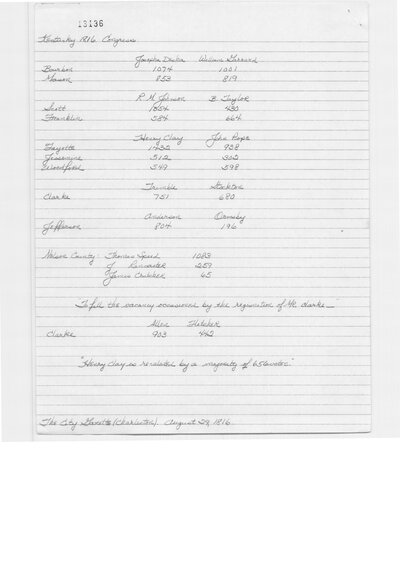 13136
Kentucky 1816 Congress
Joseph Desha William Garrard
Bourbon 1074 1001
Mason 853 819
R. M. Johnson B. Taylor
Scott 1804 430
Franklin 584 664
Henry Clay John Pope
Fayette 1432 938
Jessamine 512 302
Woodford 549 598
Trimble Stockton
Clarke 751 680
Anderson Ormsby
Jefferson 804 196
Nelson County: Thomas Speed 1083
J. Lancaster 259
James Crutcher 65
To fill the vacancy occasioned by the resignation of Mr. Clarke—
Fletcher
Clarke 903 442
"Henry Clay is reelected by a majority of 656 votes."
The City Gazette (Charleston). August 29, 1816